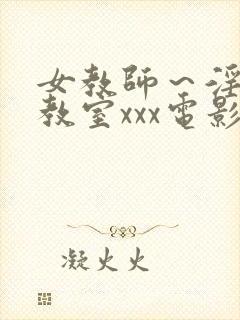 女教師～淫
教室xxx電影
凝火火